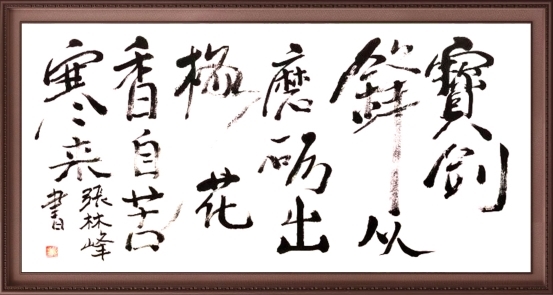 寶劍
鋒从
磨砺出
梅花
香自苦
寒来
張林峰
書